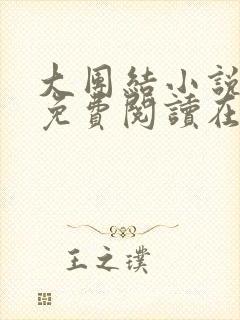 大団結小說
免費閱讀在
王之璞